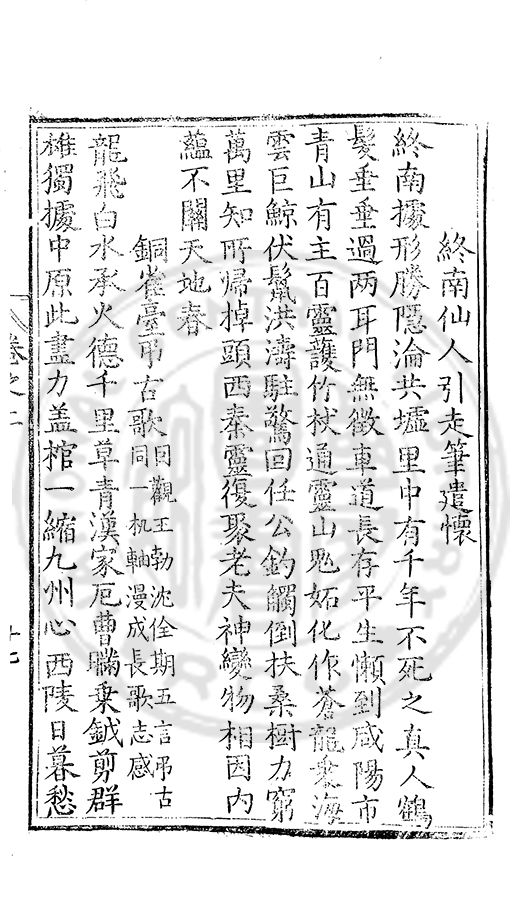 終南仙人引走筆遣懷
終南據形勝隱淪共墟里中有千年不死之真人鶴
髮垂垂過两耳門無徵車道長存平生懶到咸陽市
青山有主百靈護竹杖通靈山鬼妬化作蒼龍乗海
雲巨鯨伏鬛洪濤駐驚回任公釣觸倒扶桑樹力窮
萬里知所帰掉頭西秦靈復聚老夫神變物相因内
蘊不關天地春
銅雀臺弔古歌因觀王勃沈佺期五言弔古
歌同一机軸漫成長歌志感
龍飛白水承火德千里草青漢家厄曹瞞秉鉞剪群
雄獨據中原此盡力盖棺一縮九州心西陵日暮愁
卷之二
十七